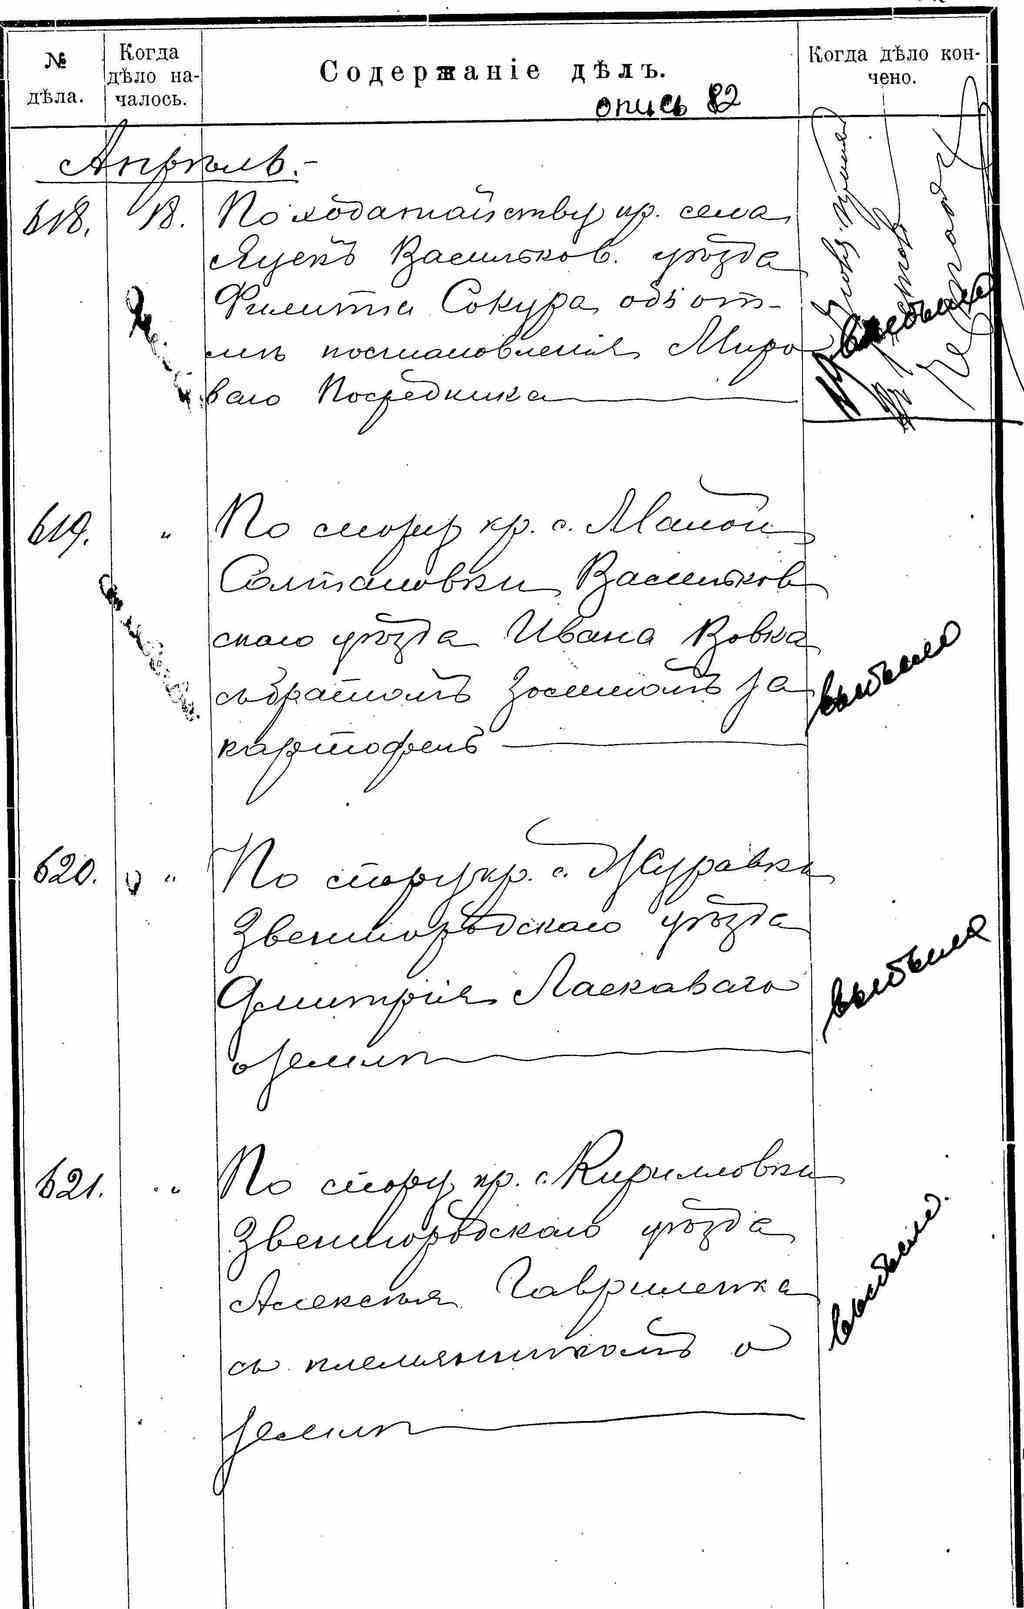 № дѣла.
Когда дѣло на-
чалось.
Содержаніе дѣлъ.
Когда дѣло кон-
чено.
опись 82
Апрѣль.-
618. 18. По ходатайству кр. села
Яцекъ Васильков. уѣзда
Филиппа Сокура объ от-
мѣнѣ постановленія Миро
ваго Посредника
выбыло
619. " По спору кр. с. Малой
Солтановки Васильков
скаго уѣзда Ивана Вовка
съ братомъ Зосимомъ за
картофель
выбыло
620. " По спору кр. с. Журавки
Звенигородскаго уѣзда
Дмитрія Ласкаваго
о землѣ
выбыло
621. " По спору кр. с. Кирилловки
Звенигородскаго уѣзда
Алексѣя Гавриленка
съ племянникомъ о
землѣ
выбыло.